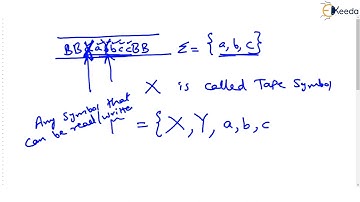 Ekeeda
BB a b c c BB Σ = {a, b, c}
X is called Tape Symbol
Any Symbol that
can be read/write
= {X, Y, a, b, c